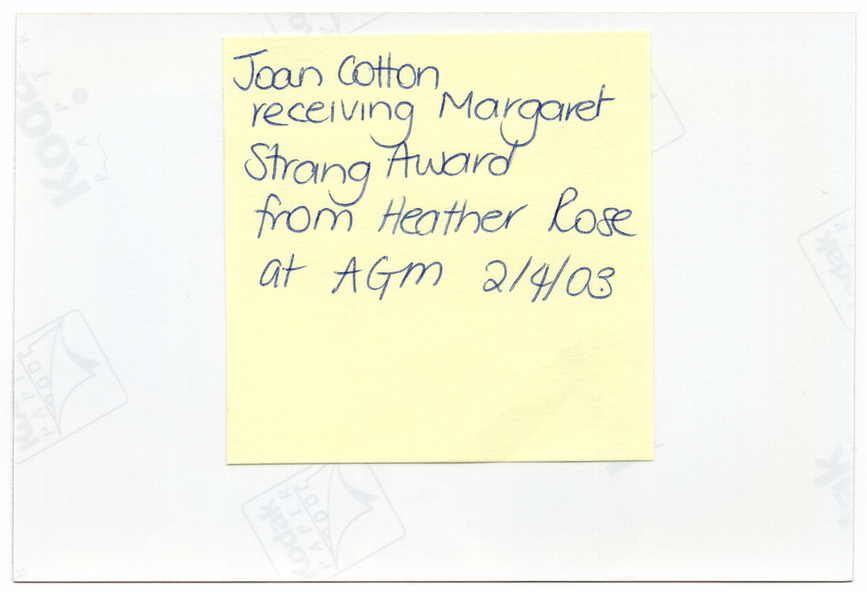 Joan Cotton
receiving Margaret
Strang Award
from Heather Rose
at AGM 2/4/03
Kodak
Kodak
PAPER
Kodak
Kodak
PAPER